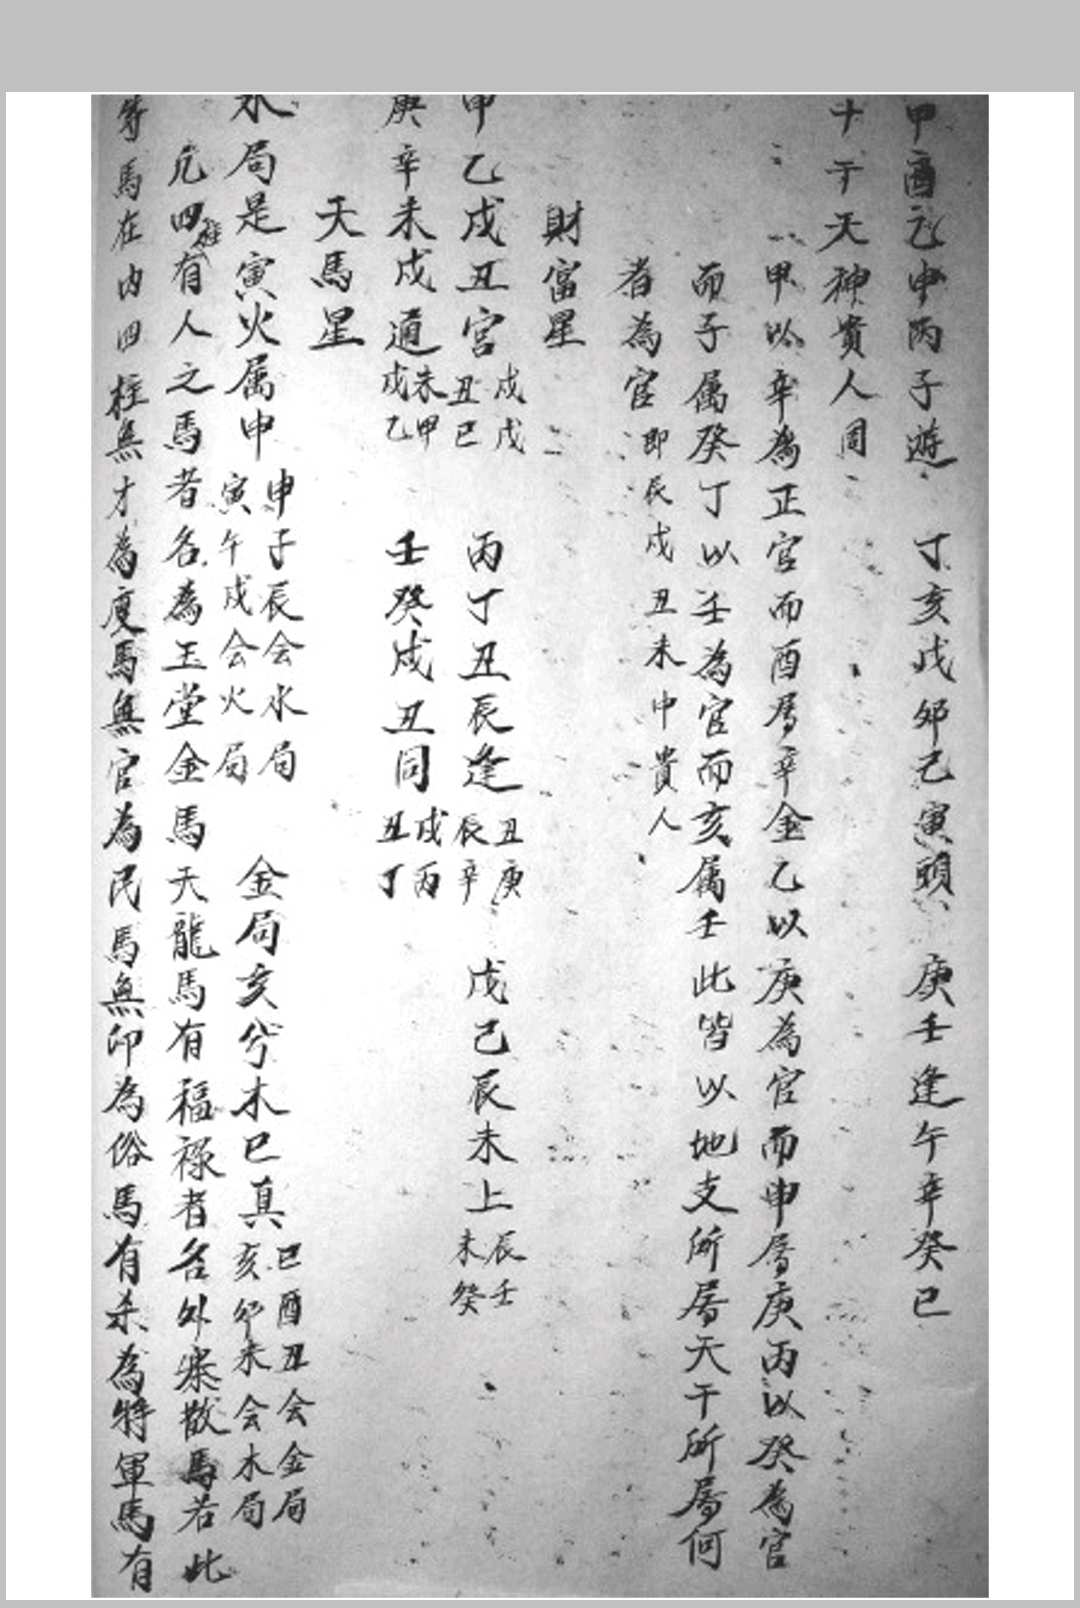 甲酉乙申丙子遊 丁亥戊卯己寅頭 庚壬逢午辛癸巳
十干天神貴人同
甲以辛為正官而酉属辛金乙以庚為官而申属庚丙以癸為官
而子属癸丁以壬為官而亥属壬此皆以地支所属天干所属何
者為官即辰戌丑未中貴人
財富星
甲乙戌丑宮戌戊丑己 丙丁丑辰逢丑庚辰辛 戊己辰未上辰壬未癸
庚辛未戌通未甲戌乙 壬癸戌丑同戌丙丑丁
天馬星
水局是寅火属申申子辰会水局寅午戌会火局 金局亥兮木巳真巳酉丑会金局亥卯未会木局
凡四柱有人之馬者名為玉堂金馬天龍馬有福禄者名外寨散馬若此
等馬在内四柱無才為廋馬無官為民馬無印為俗馬有杀為特軍馬有